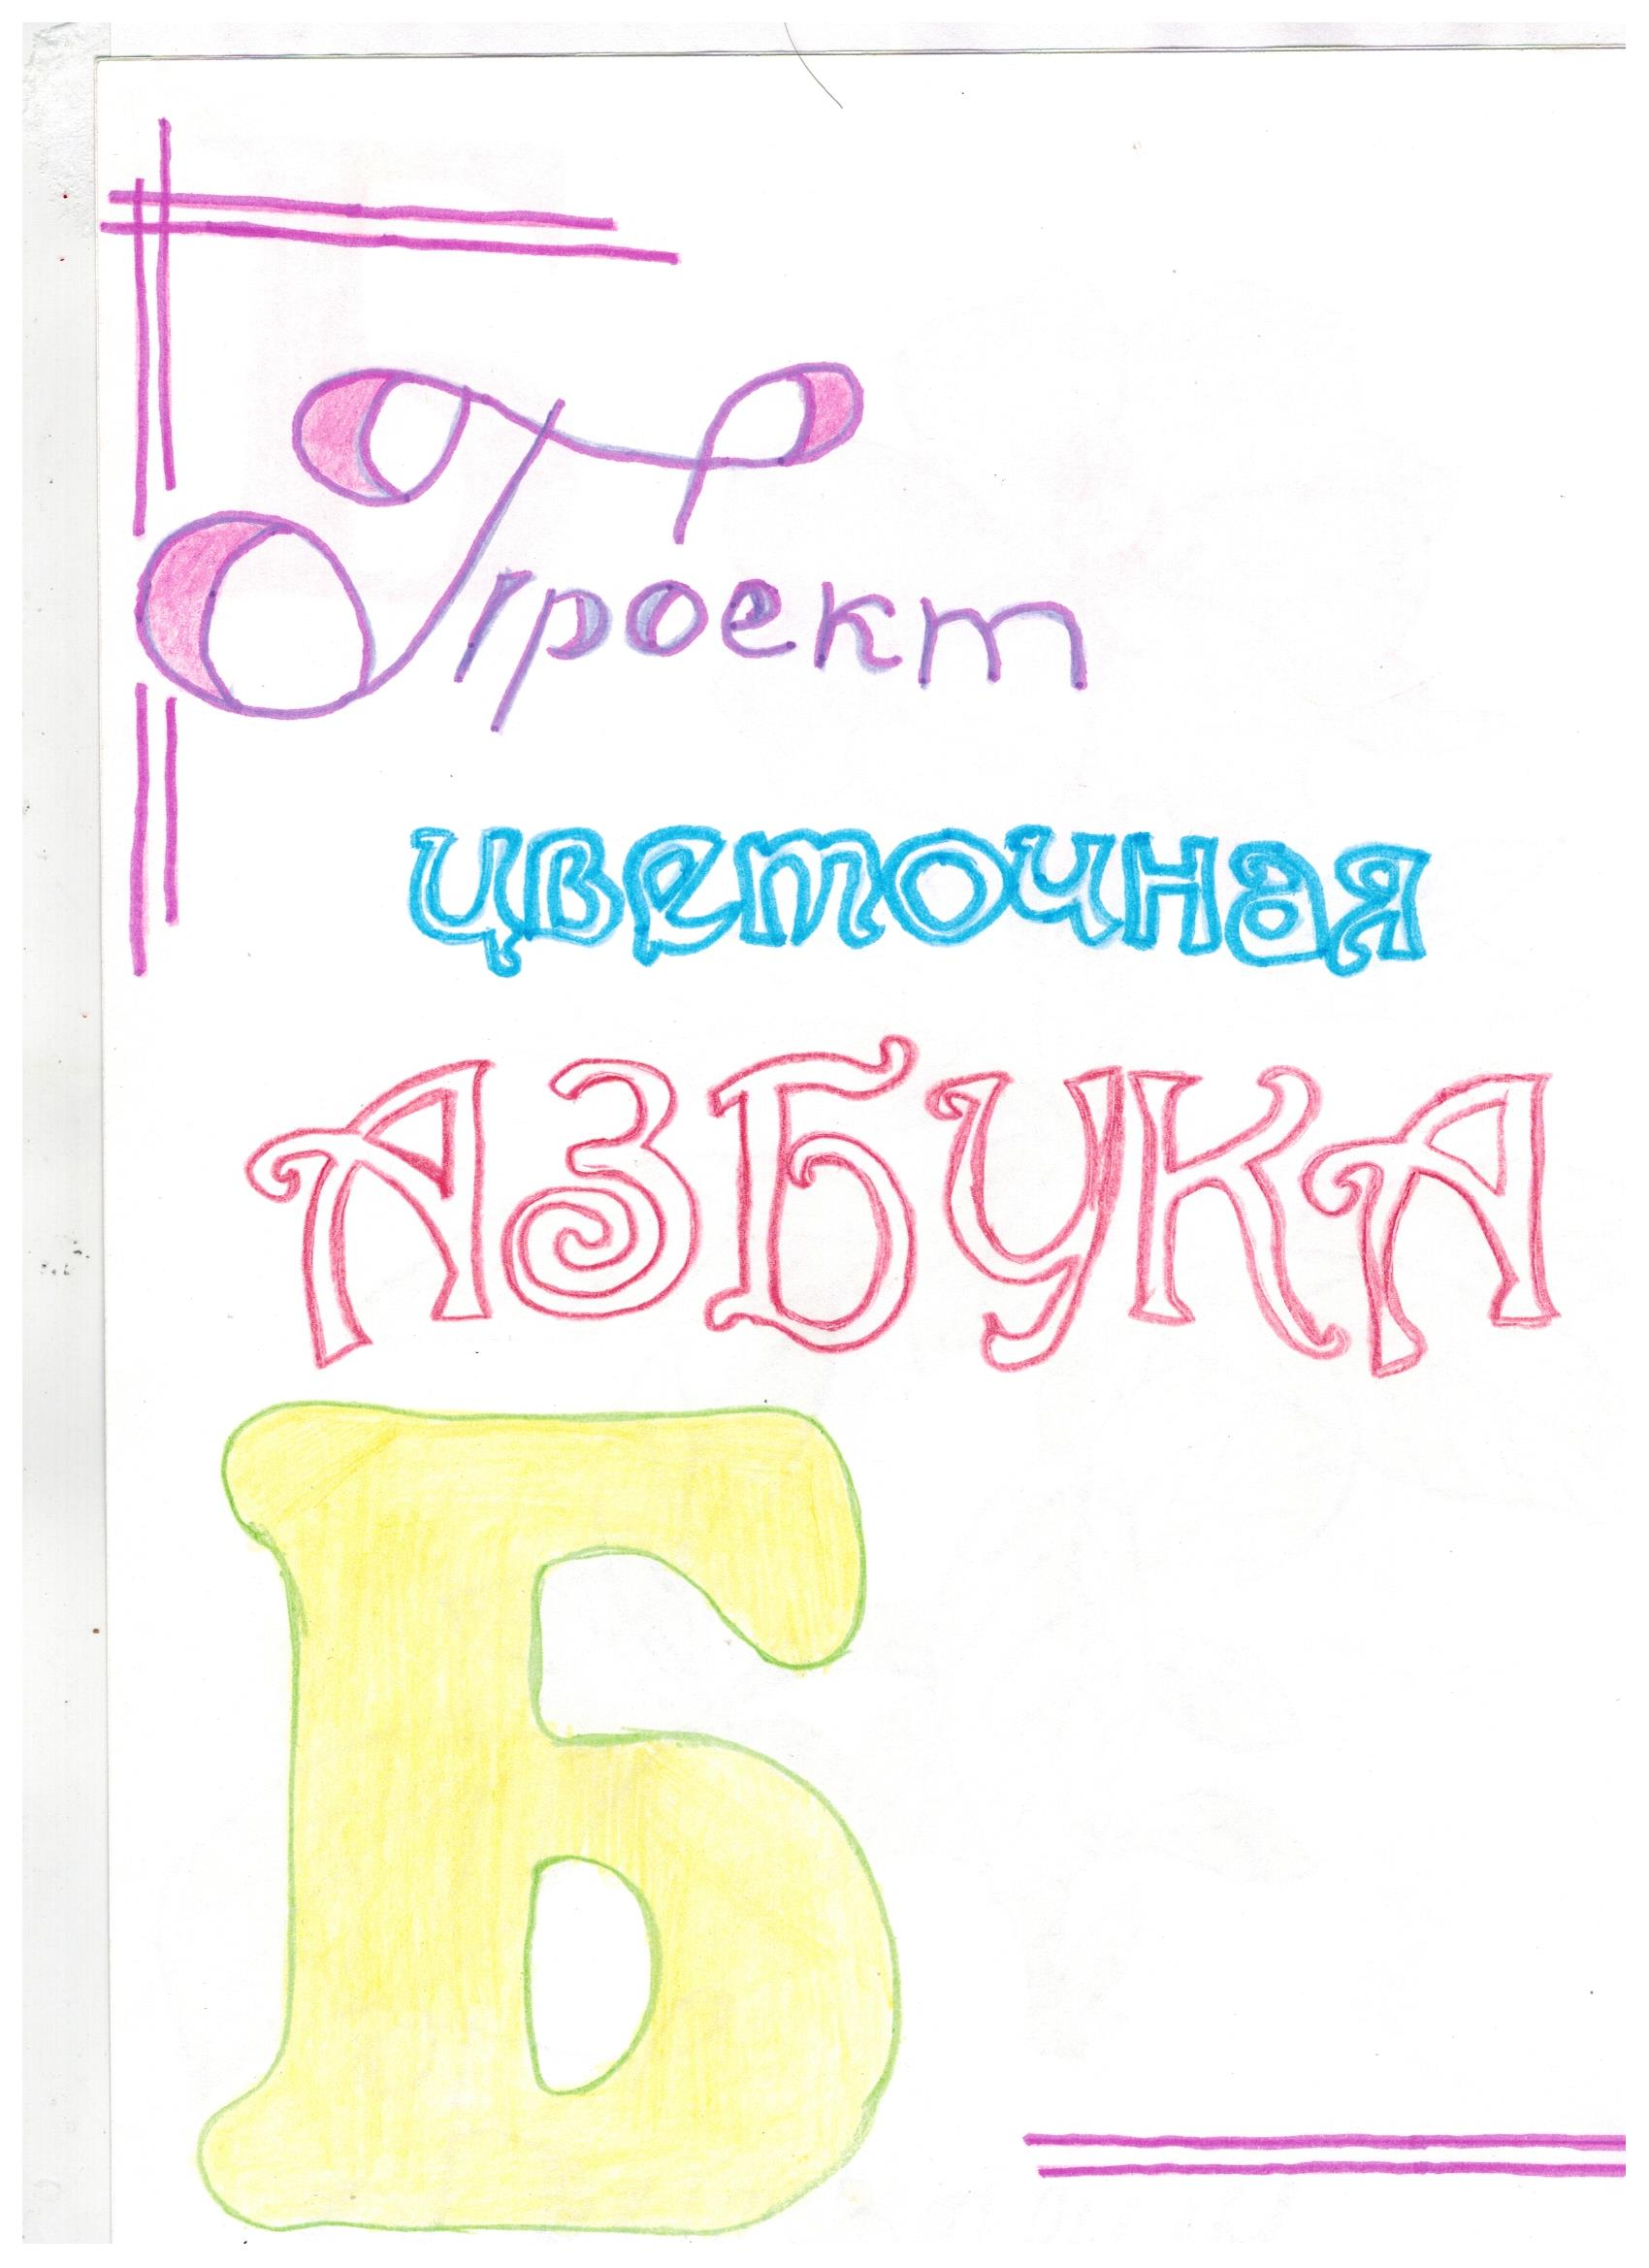 Проект
цветочная
АЗБУКА
Б